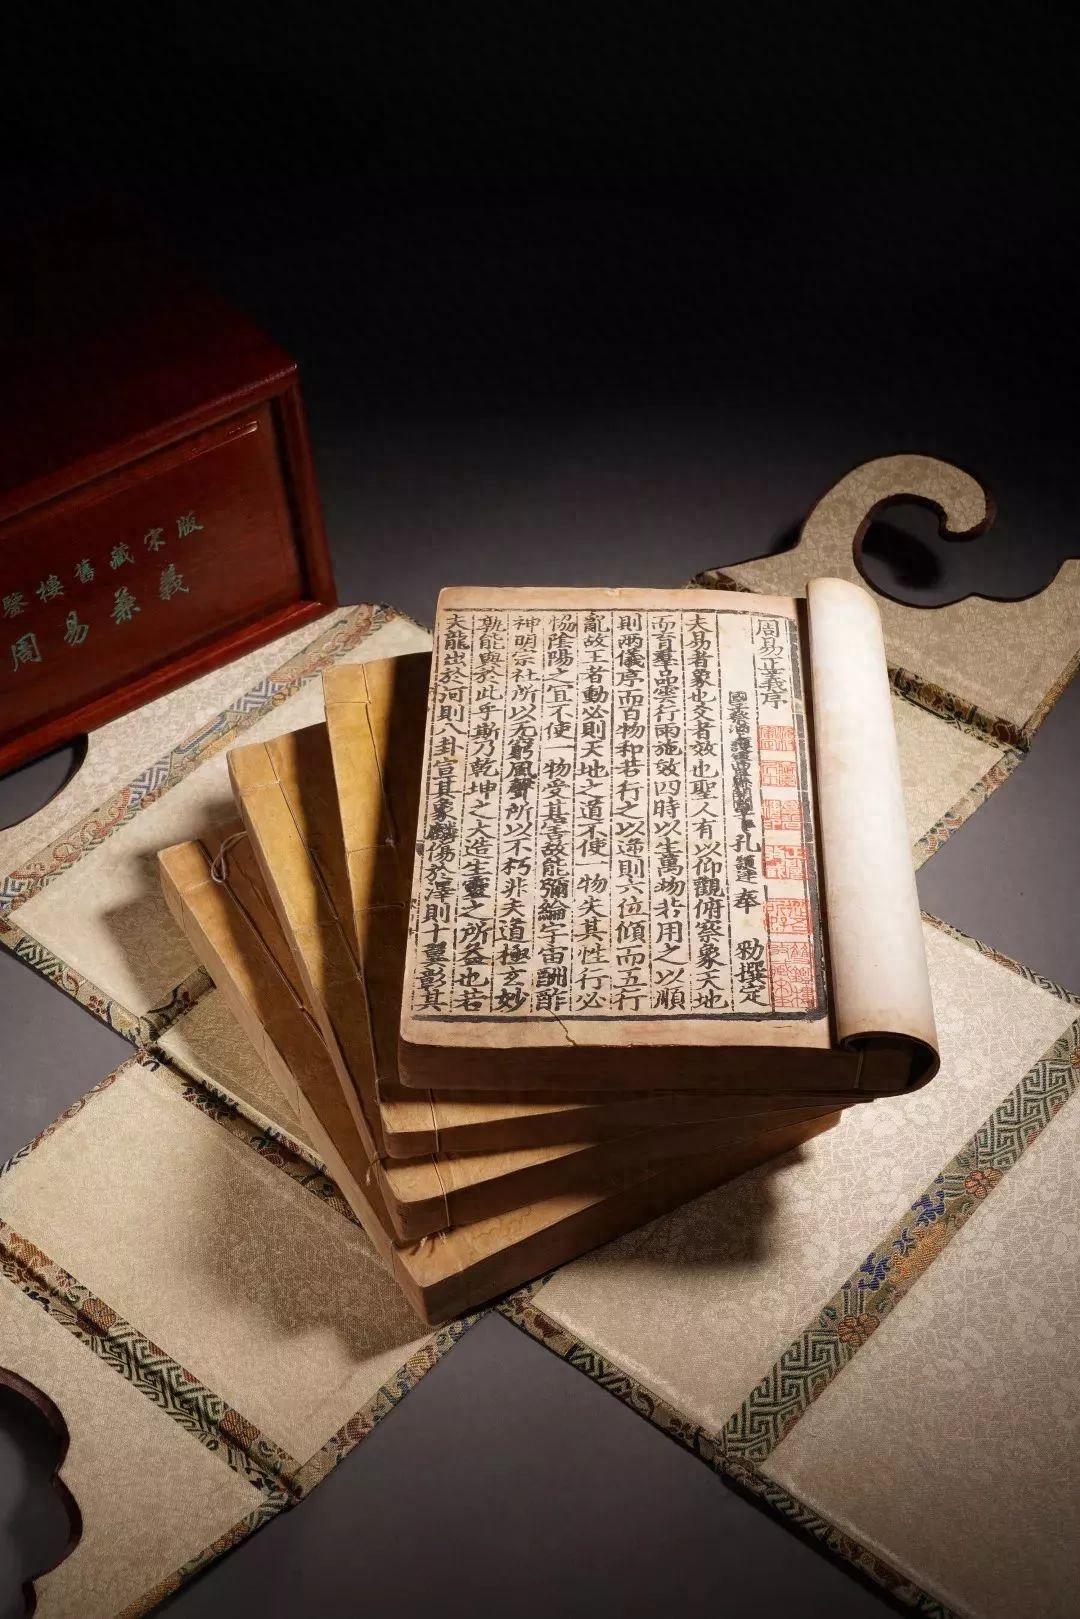 鑒樓舊藏宋版
周易兼義
周易正義序
國子祭酒上護軍曲阜縣開國子臣孔穎達奉勑撰定
夫易者象也爻者效也聖人有以仰觀俯察象天地
而育羣品雲行雨施效四時以生萬物若用之以順
則兩儀序而百物和若行之以逆則六位傾而五行
亂故王者動必則天地之道不使一物失其性行必
恊陰陽之宜不使一物受其害故能彌綸宇宙酬酢
神明宗社所以无窮風聲所以不朽非夫道極玄妙
孰能與於此乎斯乃乾坤之大造生靈之所益也若
夫龍出於河則八卦宣其象麟傷於澤則十翼彰其